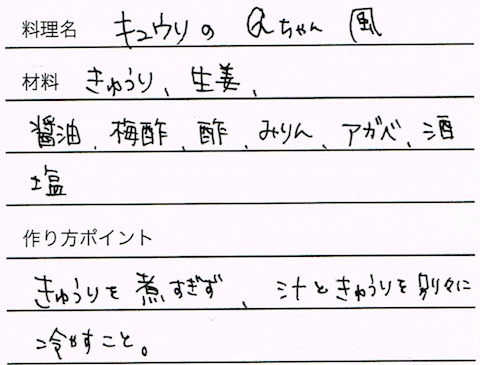 料理名 キュウリの Qちゃん 風
材料 きゅうり、生姜、
醤油、梅酢、酢、みりん、アガベ、酒
塩
作り方ポイント
きゅうりを煮すぎず、汁ときゅうりを別々に
冷やすこと。